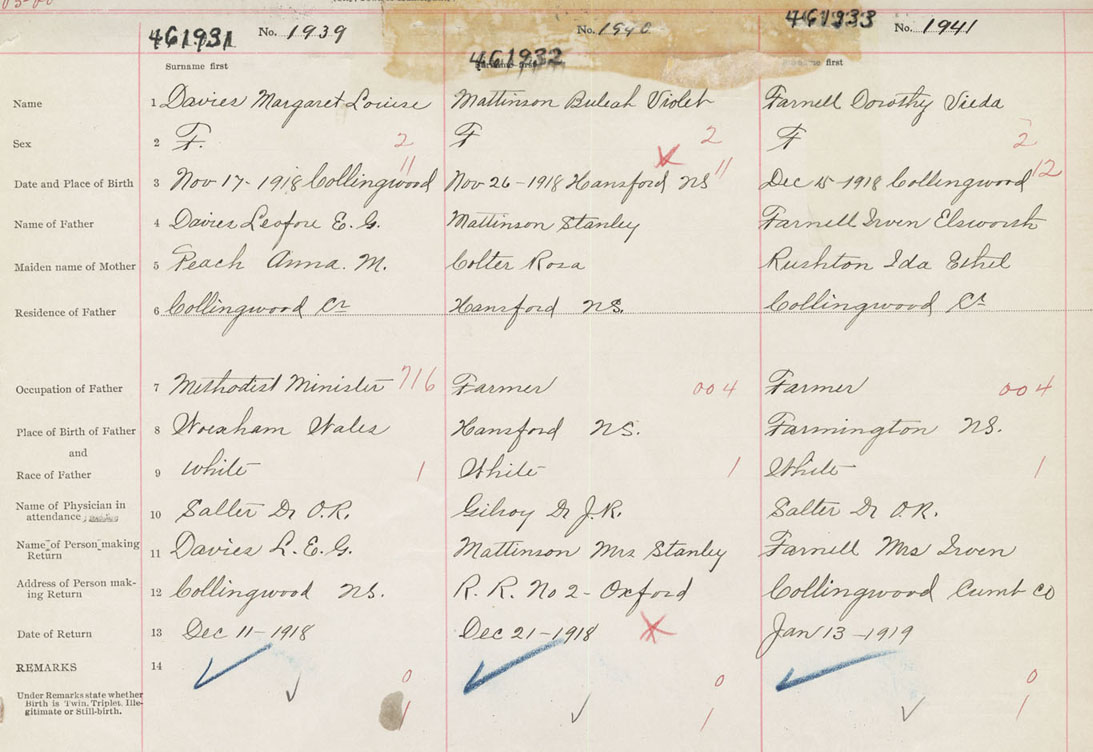 461931 No. 1939 461932 No. 1940 461933 No. 1941
Surname first Surname first Surname first
Name 1 Davies Margaret Louise Mattinson Beulah Violet Farnell Dorothy Vieda
Sex 2 F. 2 F 2 F 2
Date and Place of Birth 3 Nov 17-1918 Collingwood 11 Nov 26-1918 Hansford NS 11 Dec 15-1918 Collingwood 12
Name of Father 4 Davies E. G. Mattinson Stanley Farnell Irven Elsworth
Maiden name of Mother 5 Peach Anna. M. Colter Rosa Rushton Ida Ethel
Residence of Father 6 Collingwood Cr Hansford NS. Collingwood Cr
Occupation of Father 7 Methodist Minister 716 Farmer 004 Farmer 004
Place of Birth of Father 8 Wrexham Wales Hansford NS. Farmington NS.
and
Race of Father 9 White 1 White 1 White 1
Name of Physician in
attendance 10 Salter Dr O.R. Gilroy Dr J.R. Salter Dr O.R.
Name of Person making
Return 11 Davies L.E.G. Mattinson Mrs Stanley Farnell Mrs Irven
Address of Person mak-
ing Return 12 Collingwood NS. R. R. No 2 - Oxford Collingwood Cumb Co
Date of Return 13 Dec 11-1918 Dec 21-1918 Jan 13-1919
REMARKS 14
0 0 0
Under Remarks state whether
Birth is Twin, Triplet, Ille-
gitimate or Still-birth.
1 1 1